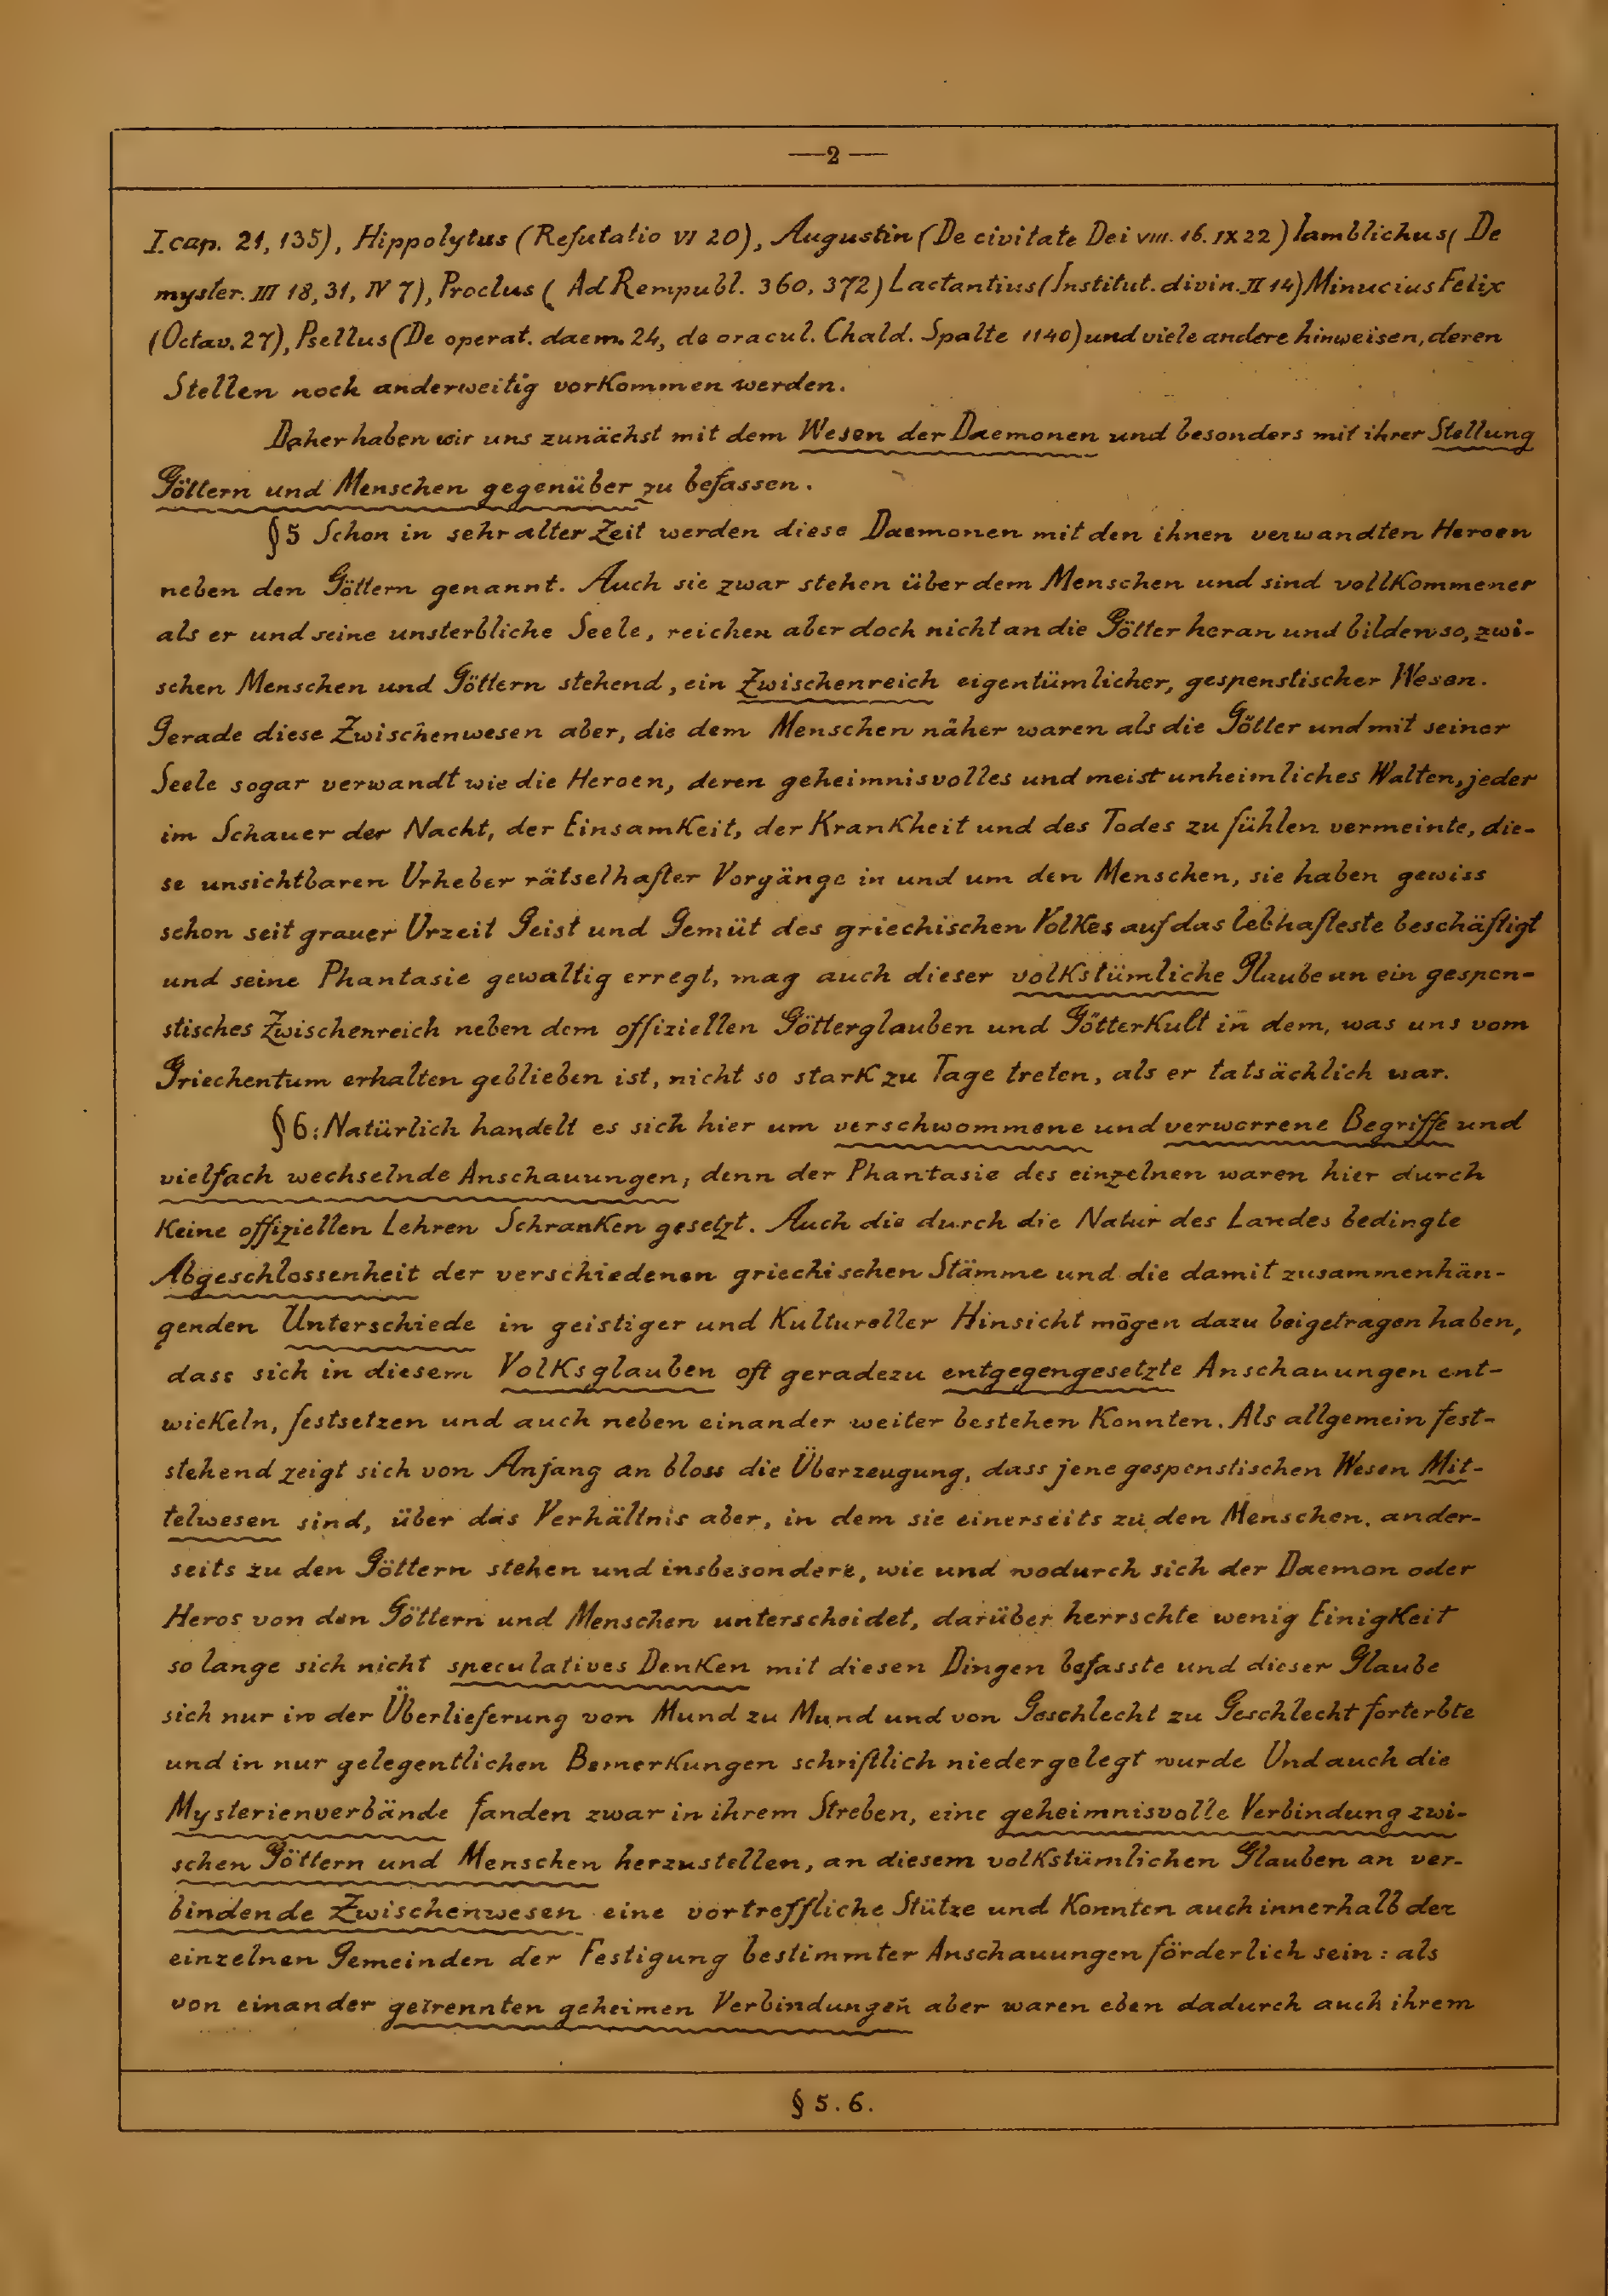 —2—
I. cap. 21, 135), Hippolytus (Refutatio VI 20), Augustin (De civitate Dei VIII. 16. IX 22) Iamblichus( De
myster. III 18, 31, IV 7), Proclus ( Ad Rempubl. 360, 372) Lactantius (Institut. divin. II 14) Minucius Felix
(Octav. 27), Psellus (De operat. daem. 24, de oracul. Chald. Spalte 1140) und viele andere hinweisen, deren
Stellen noch anderweitig vorkommen werden.
Daher haben wir uns zunächst mit dem Wesen der Daemonen und besonders mit ihrer Stellung
Göttern und Menschen gegenüber zu befassen.
§5 Schon in sehr alter Zeit werden diese Daemonen mit den ihnen verwandten Heroen
neben den Göttern genannt. Auch sie zwar stehen über dem Menschen und sind vollkommener
als er und seine unsterbliche Seele, reichen aber doch nicht an die Götter heran und bilden so, zwi-
schen Menschen und Göttern stehend, ein Zwischenreich eigentümlicher, gespenstischer Wesen.
Gerade diese Zwischenwesen aber, die dem Menschen näher waren als die Götter und mit seiner
Seele sogar verwandt wie die Heroen, deren geheimnisvolles und meist unheimliches Walten, jeder
im Schauer der Nacht, der Einsamkeit, der Krankheit und des Todes zu fühlen vermeinte, die-
se unsichtbaren Urheber rätselhafter Vorgänge in und um den Menschen, sie haben gewiss
schon seit grauer Urzeit Geist und Gemüt des griechischen Volkes auf das lebhafteste beschäftigt
und seine Phantasie gewaltig erregt, mag auch dieser volkstümliche Glaube an ein gespen-
stisches Zwischenreich neben dem offiziellen Götterglauben und Götterkult in dem, was uns vom
Griechentum erhalten geblieben ist, nicht so stark zu Tage treten, als er tatsächlich war.
§6: Natürlich handelt es sich hier um verschwommene und verworrene Begriffe und
vielfach wechselnde Anschauungen, denn der Phantasie des einzelnen waren hier durch
keine offiziellen Lehren Schranken gesetzt. Auch die durch die Natur des Landes bedingte
Abgeschlossenheit der verschiedenen griechischen Stämme und die damit zusammenhän-
genden Unterschiede in geistiger und kultureller Hinsicht mögen dazu beigetragen haben,
dass sich in diesem Volksglauben oft geradezu entgegengesetzte Anschauungen ent-
wickeln, festsetzen und auch neben einander weiter bestehen konnten. Als allgemein fest-
stehend zeigt sich von Anfang an bloss die Überzeugung, dass jene gespenstischen Wesen Mit-
telwesen sind, über das Verhältnis aber, in dem sie einerseits zu den Menschen, ander-
seits zu den Göttern stehen und insbesondere, wie und wodurch sich der Daemon oder
Heros von den Göttern und Menschen unterscheidet, darüber herrschte wenig Einigkeit
so lange sich nicht speculatives Denken mit diesen Dingen befasste und dieser Glaube
sich nur in der Überlieferung von Mund zu Mund und von Geschlecht zu Geschlecht forterbte
und in nur gelegentlichen Bemerkungen schriftlich niedergelegt wurde Und auch die
Mysterienverbände fanden zwar in ihrem Streben, eine geheimnisvolle Verbindung zwi-
schen Göttern und Menschen herzustellen, an diesem volkstümlichen Glauben an ver-
bindende Zwischenwesen eine vortreffliche Stütze und konnten auch innerhalb der
einzelnen Gemeinden der Festigung bestimmter Anschauungen förderlich sein: als
von einander getrennten geheimen Verbindungen aber waren eben dadurch auch ihrem
§ 5. 6.